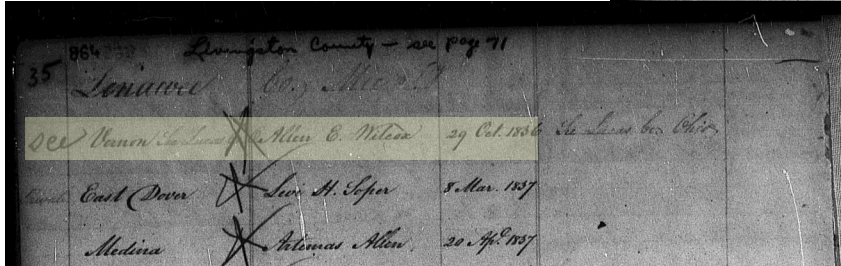 864 Livingston County - see page 71
35 Lenawee Co., Mich
see Vernon See Lucas X Allen E. Wilcox 29 Oct. 1836 See Lucas Co. Ohio
East Dover X Levi H. Soper 8 Mar. 1837
Medina X Artemas Allen 20 Apl. 1837